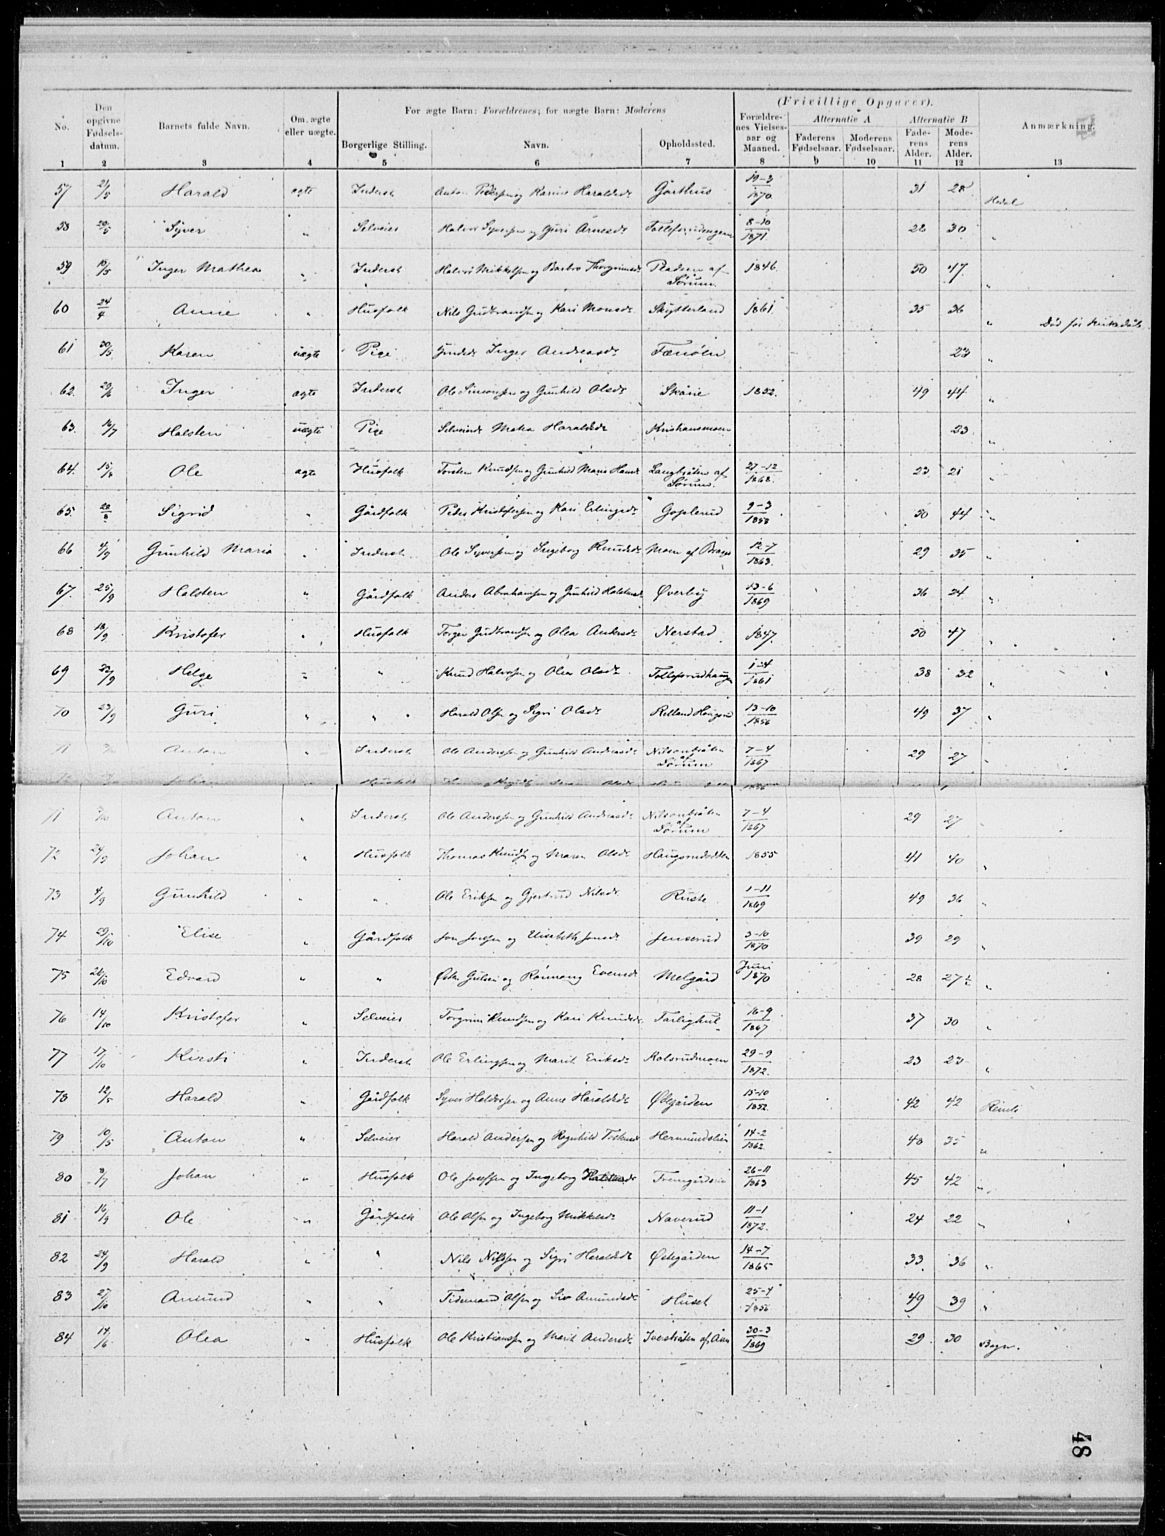 For ægte Barn: Forældrenes; for uægte Barn: Moderens
(Frivillige Opgaver).
No. Den opgivne Fødsels-datum. Barnets fulde Navn. Om ægte eller uægte. Borgerlige Stilling. Navn. Opholdssted. Forældrenes Vielses-aar og Maaned. Alternativ A Faderens Fødselsaar. Moderens Fødselsaar. Alternativ B Faderens Alder. Moderens Alder. Anmærkning.
1 2 3 4 5 6 7 8 9 10 11 12 13
57 21/5 Harald ægte Inderst Anton Pedersen og Karine Haraldsd. Garthus 19-3 1870 31 28 Hedal
58 Syver " Selveier Halvor Syversen og Guri Arnesd. 8-10 1871 22 30 "
59 Inger Mathea " Inderst Halvor Mikkelsen og Barbro Thorgrimsd. Pladsen af Sørum 1846 50 47 "
60 24/4 Anne " Husfolk Nils Gudbrandsen og Kari Monsd. Skytterland 1861 35 36 "
61 20/5 Karen uægte Pige Inger Andreasd. 23 "
62. Inger ægte Inderst Ole Simonsen og Gunhild Olsd. 1852. 49 44 "
63. Halsten uægte Pige Haraldsd. Kristiansmoen 23 "
64. Ole ægte Husfolk Torsten Knudsen og Gunhild Marie Sørum 27-12 1868. 23 21 "
65. Sigrid " Gårdfolk Peder Kristofersen og Kari Erlingsd. Goplerud 9-3 1853 50 44 "
66 4/9 Gunhild Maria " Inderst Ole Syversen og Ingeborg Knudsd. Moen af 12-7 1863. 29 35 "
67. 25/9 Halsten " Gårdfolk Anders Abrahamsen og Gunhild Halstensd. Øverby 13-6 1869 36 24 "
68 18/9 Kristofer " Husfolk Torger Gudbrandsen og Olea Andersd. Nerstad 1847. 50 47 "
69 22/9 Helge " " Knud Halvorsen og Olea Olsd. Tollefsrudhaugen 1-4 1861 38 32 "
70 23/9 Guri " " Harald Olsen og Sigri Olsd. 13-10 1856 49 37 "
71 Anton " Inderst Ole Andersen og Gunhild Andreasd. Nilsenbråten af Sørum 7-4 1867 29 27 "
71 Anton " Inderst Ole Andersen og Gunhild Andreasd. Nilsenbråten af Sørum 7-4 1867 29 27 "
72 24/9 Johan " Husfolk Thomas Knudsen og Maren Olsd. 1855 41 40 "
73 4/9 Gunhild " " Ole Eriksen og Gjertrud Nilsd. Ruste 1-11 1869 49 36 "
74 29/10 Elise " Gårdfolk Jon Jonsen og Elisabeth Jonsd. Jenserud 3-10 1870 39 29 "
75 26/10 Edvard " " Rønnaug Evensd. Melgård Juni 1870 28 27½ "
76 14/10 Kristofer " Selveier Torgrim Knudsen og Kari Knudsd. 16-9 1867 37 30 "
77 17/10 Kirsti " Inderst Ole Erlingsen og Marit Eriksd. Rolsrudmoen 29-9 1872. 23 23 "
78 12/5 Harald " Gårdfolk Syver Haldorsen og Anne Haraldsd. Østgården 15-10 1852 42 42 Reinli
79 10/5 Anton " Selveier Harald Andersen og Ragnhild Hermundstein 14-2 1862. 48 35 "
80 8/7 Johan " Husfolk Ole Josefsen og Ingeborg Halstensd. 26-11 1863 45 42 "
81 16/9 Ole " Gårdfolk Ole Olsen og Ingeborg Mikkelsd. Naverud 11-1 1872. 24 22 "
82 24/9 Harald " " Nils Nilssen og Sigri Haraldsd. Østgården 14-7 1865 33 36 "
83 27/10 Amund " " Tidemand Olsen og Siv Amundsd. Huset 25-4 1856 49 39 "
84 14/6 Olea " Husfolk Ole Kristiansen og Marit Andersd. 30-3 1869 29 30 Bagn.
48